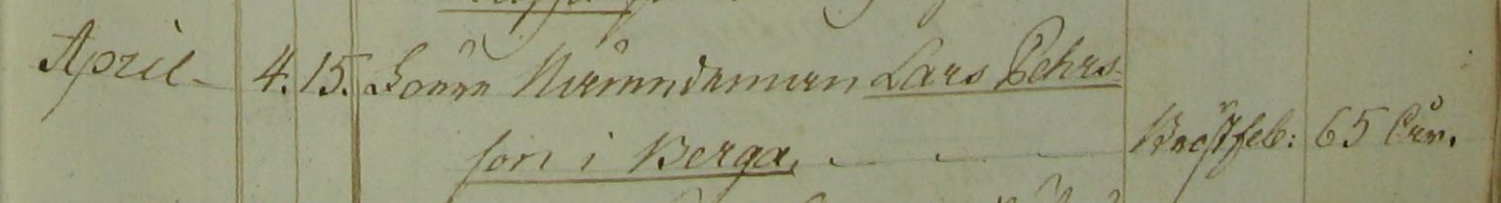 April 4. 15. Förre Nämndeman Lars Pehrs-
son i Berga, Bröstfeb: 65 år.